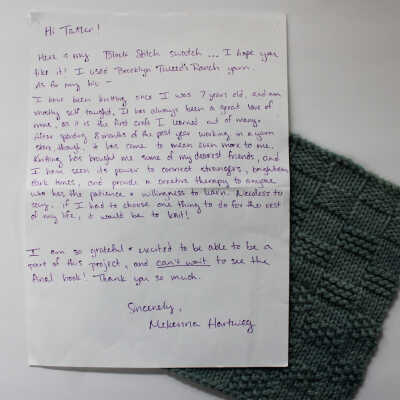 Hi Tatter!
Here is my Block Stitch swatch... I hope you
like it! I used Brooklyn Tweed's Ranch yarn.
As for my bio -
I have been knitting since I was 7 years old, and am
mostly self taught. It has always been a great love of
mine, as it is the first craft I learned out of many.
After spending 8 months of the past year working in a yarn
store, though, it has come to mean even more to me.
Knitting has brought me some of my dearest friends, and
I have seen its power to connect strangers, brighten
dark times, and provide a creative therapy to anyone
who has the patience + willingness to learn. Needless to
say, if I had to choose one thing to do for the rest
of my life, it would be to knit!
I am so grateful + excited to be able to be a
part of this project, and can't wait to see the
final book! Thank you so much.
Sincerely,
Mekenna Hartweg